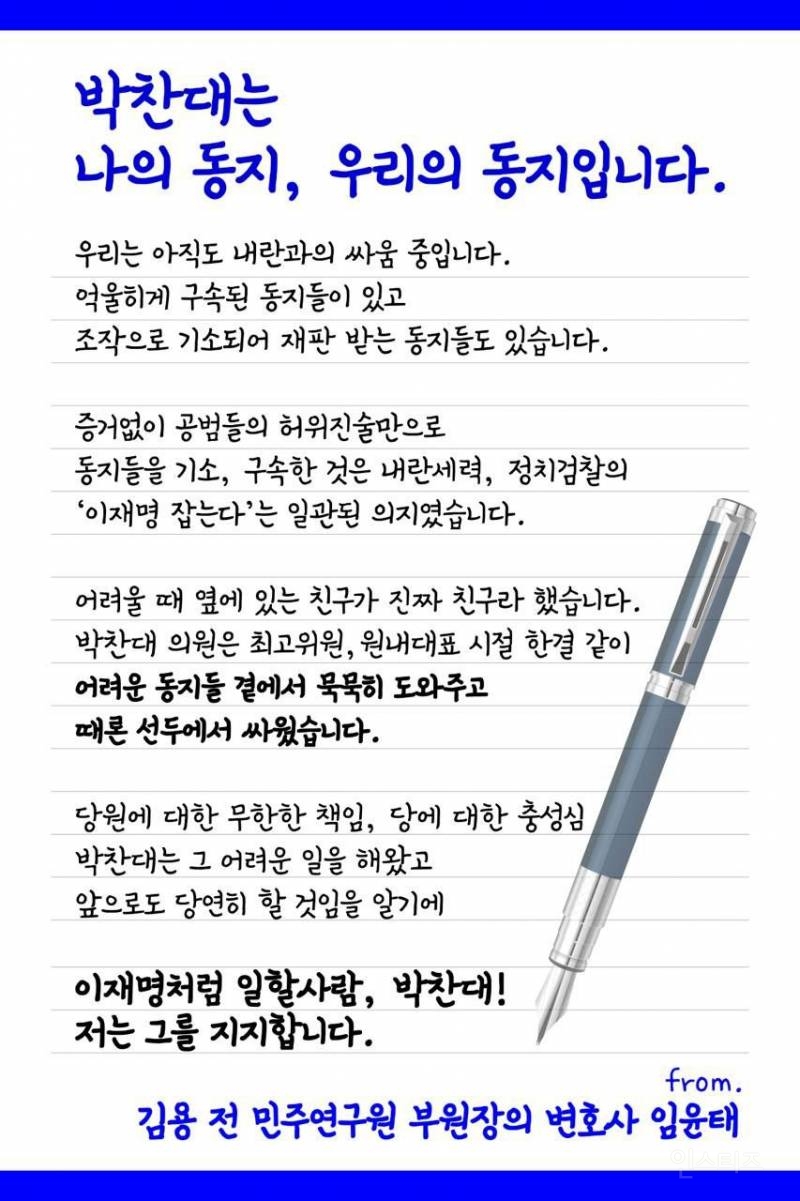 박찬대는
나의 동지, 우리의 동지입니다.
우리는 아직도 내란과의 싸움 중입니다.
억울하게 구속된 동지들이 있고
조작으로 기소되어 재판 받는 동지들도 있습니다.
증거없이 공범들의 허위진술만으로
동지들을 기소, 구속한 것은 내란세력, 정치검찰의
‘이재명 잡는다’는 일관된 의지였습니다.
어려울 때 옆에 있는 친구가 진짜 친구라 했습니다.
박찬대 의원은 최고위원, 원내대표 시절 한결 같이
어려운 동지들 곁에서 묵묵히 도와주고
때론 선두에서 싸웠습니다.
당원에 대한 무한한 책임, 당에 대한 충성심
박찬대는 그 어려운 일을 해왔고
앞으로도 당연히 할 것임을 알기에
이재명처럼 일할사람, 박찬대!
저는 그를 지지합니다.
from.
김용 전 민주연구원 부원장의 변호사 임윤태
인스티즈